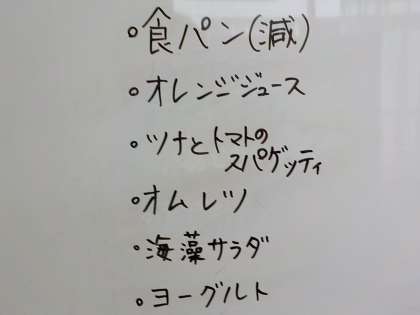 ・食パン(減)
・オレンジジュース
・ツナとトマトの
スパゲッティ
・オムレツ
・海藻サラダ
・ヨーグルト